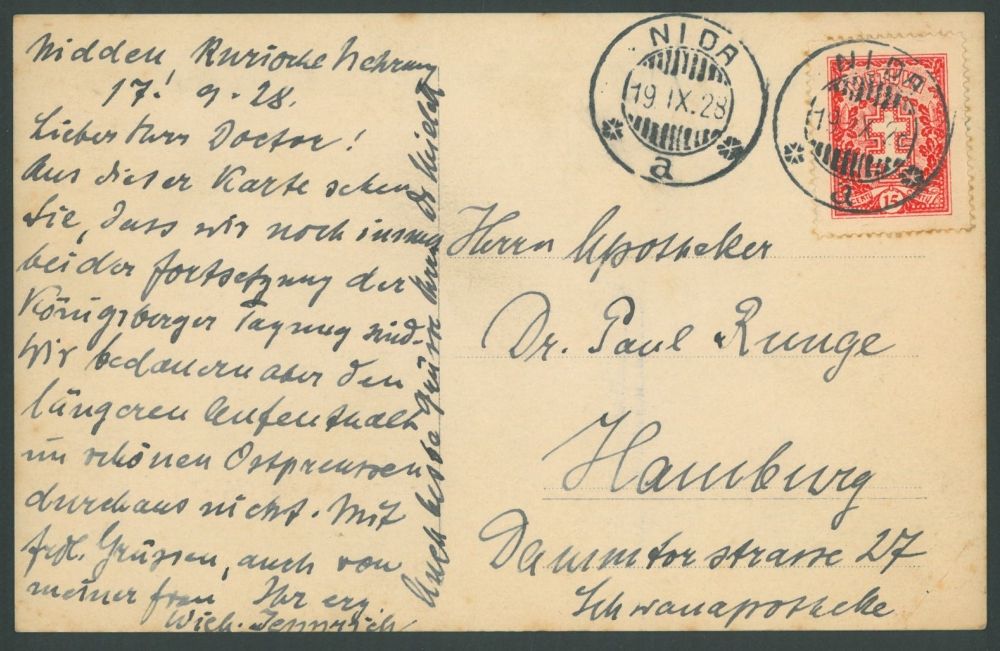 Nidden Kurische Nehrung
17. 9. 28.
Lieber Herr Doctor!
Aus dieser Karte sehen
Sie, dass wir noch immer
bei der Fortsetzung der
Königsberger Tagung sind.
Wir bedauern aber den
längeren Aufenthalt
im schönen Ostpreussen
durchaus nicht. Mit
frdl. Grüssen, auch von
meiner Frau Ihr erg.
Wilh.
Auch beste Grüsse
NIDA
19 IX.28
a
NIDA
19 IX 28
a
15
Herrn Apotheker
Dr. Paul Runge
Hamburg
Dammtorstrasse 27
Schwanapotheke